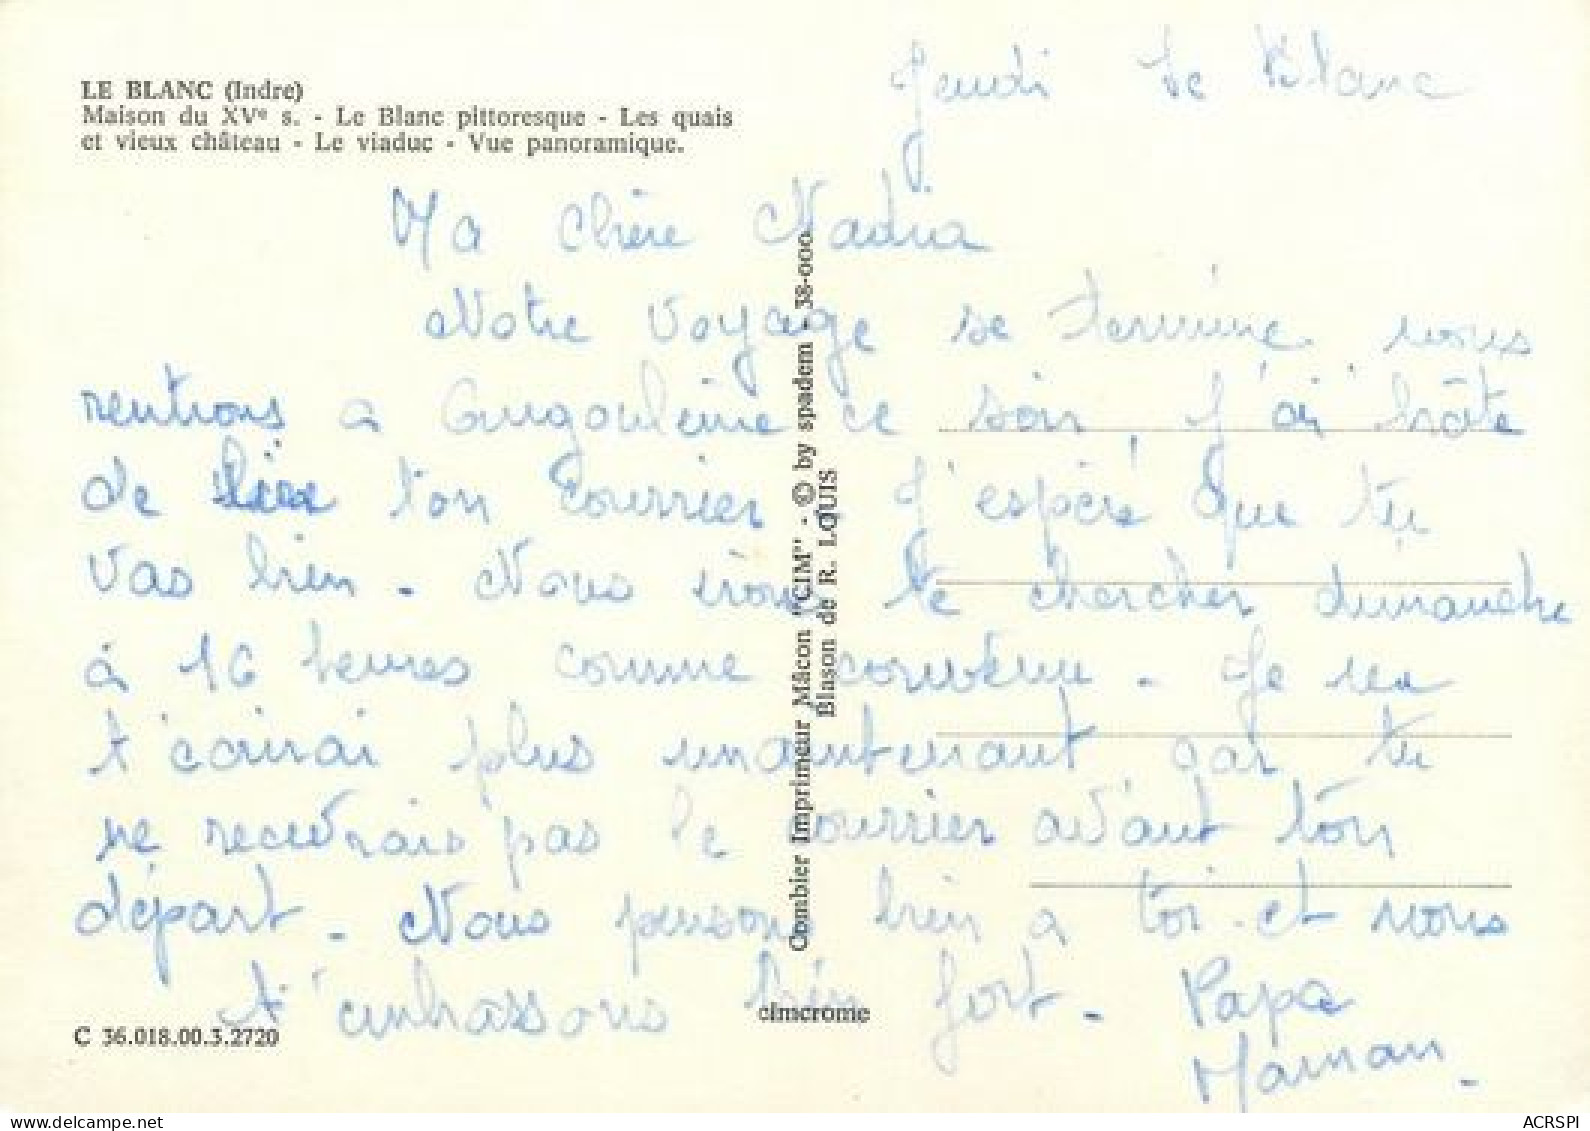 LE BLANC (Indre)
Maison du XVe s. - Le Blanc pittoresque - Les quais
et vieux château - Le viaduc - Vue panoramique.
Jeudi Le Blanc
Ma Chère Nadia
Notre voyage se termine, nous
rentrons a Angoulême ce soir, J'ai hâte
de lire ton courrier J'espère que tu
vas bien - Nous irons te chercher dimanche
à 16 heures comme convenu - Je ne
t'écrirai plus maintenant car tu
ne recevrais pas le courrier avant ton
départ - Nous pensons bien a toi et nous
t'embrassons bien fort - Papa
Maman -
Combier Imprimeur Mâcon "CIM" - © by spadem - 38-000
Blason de R. LOUIS
cimcrome
C 36.018.00.3.2720
www.delcampe.net
ACRSPI